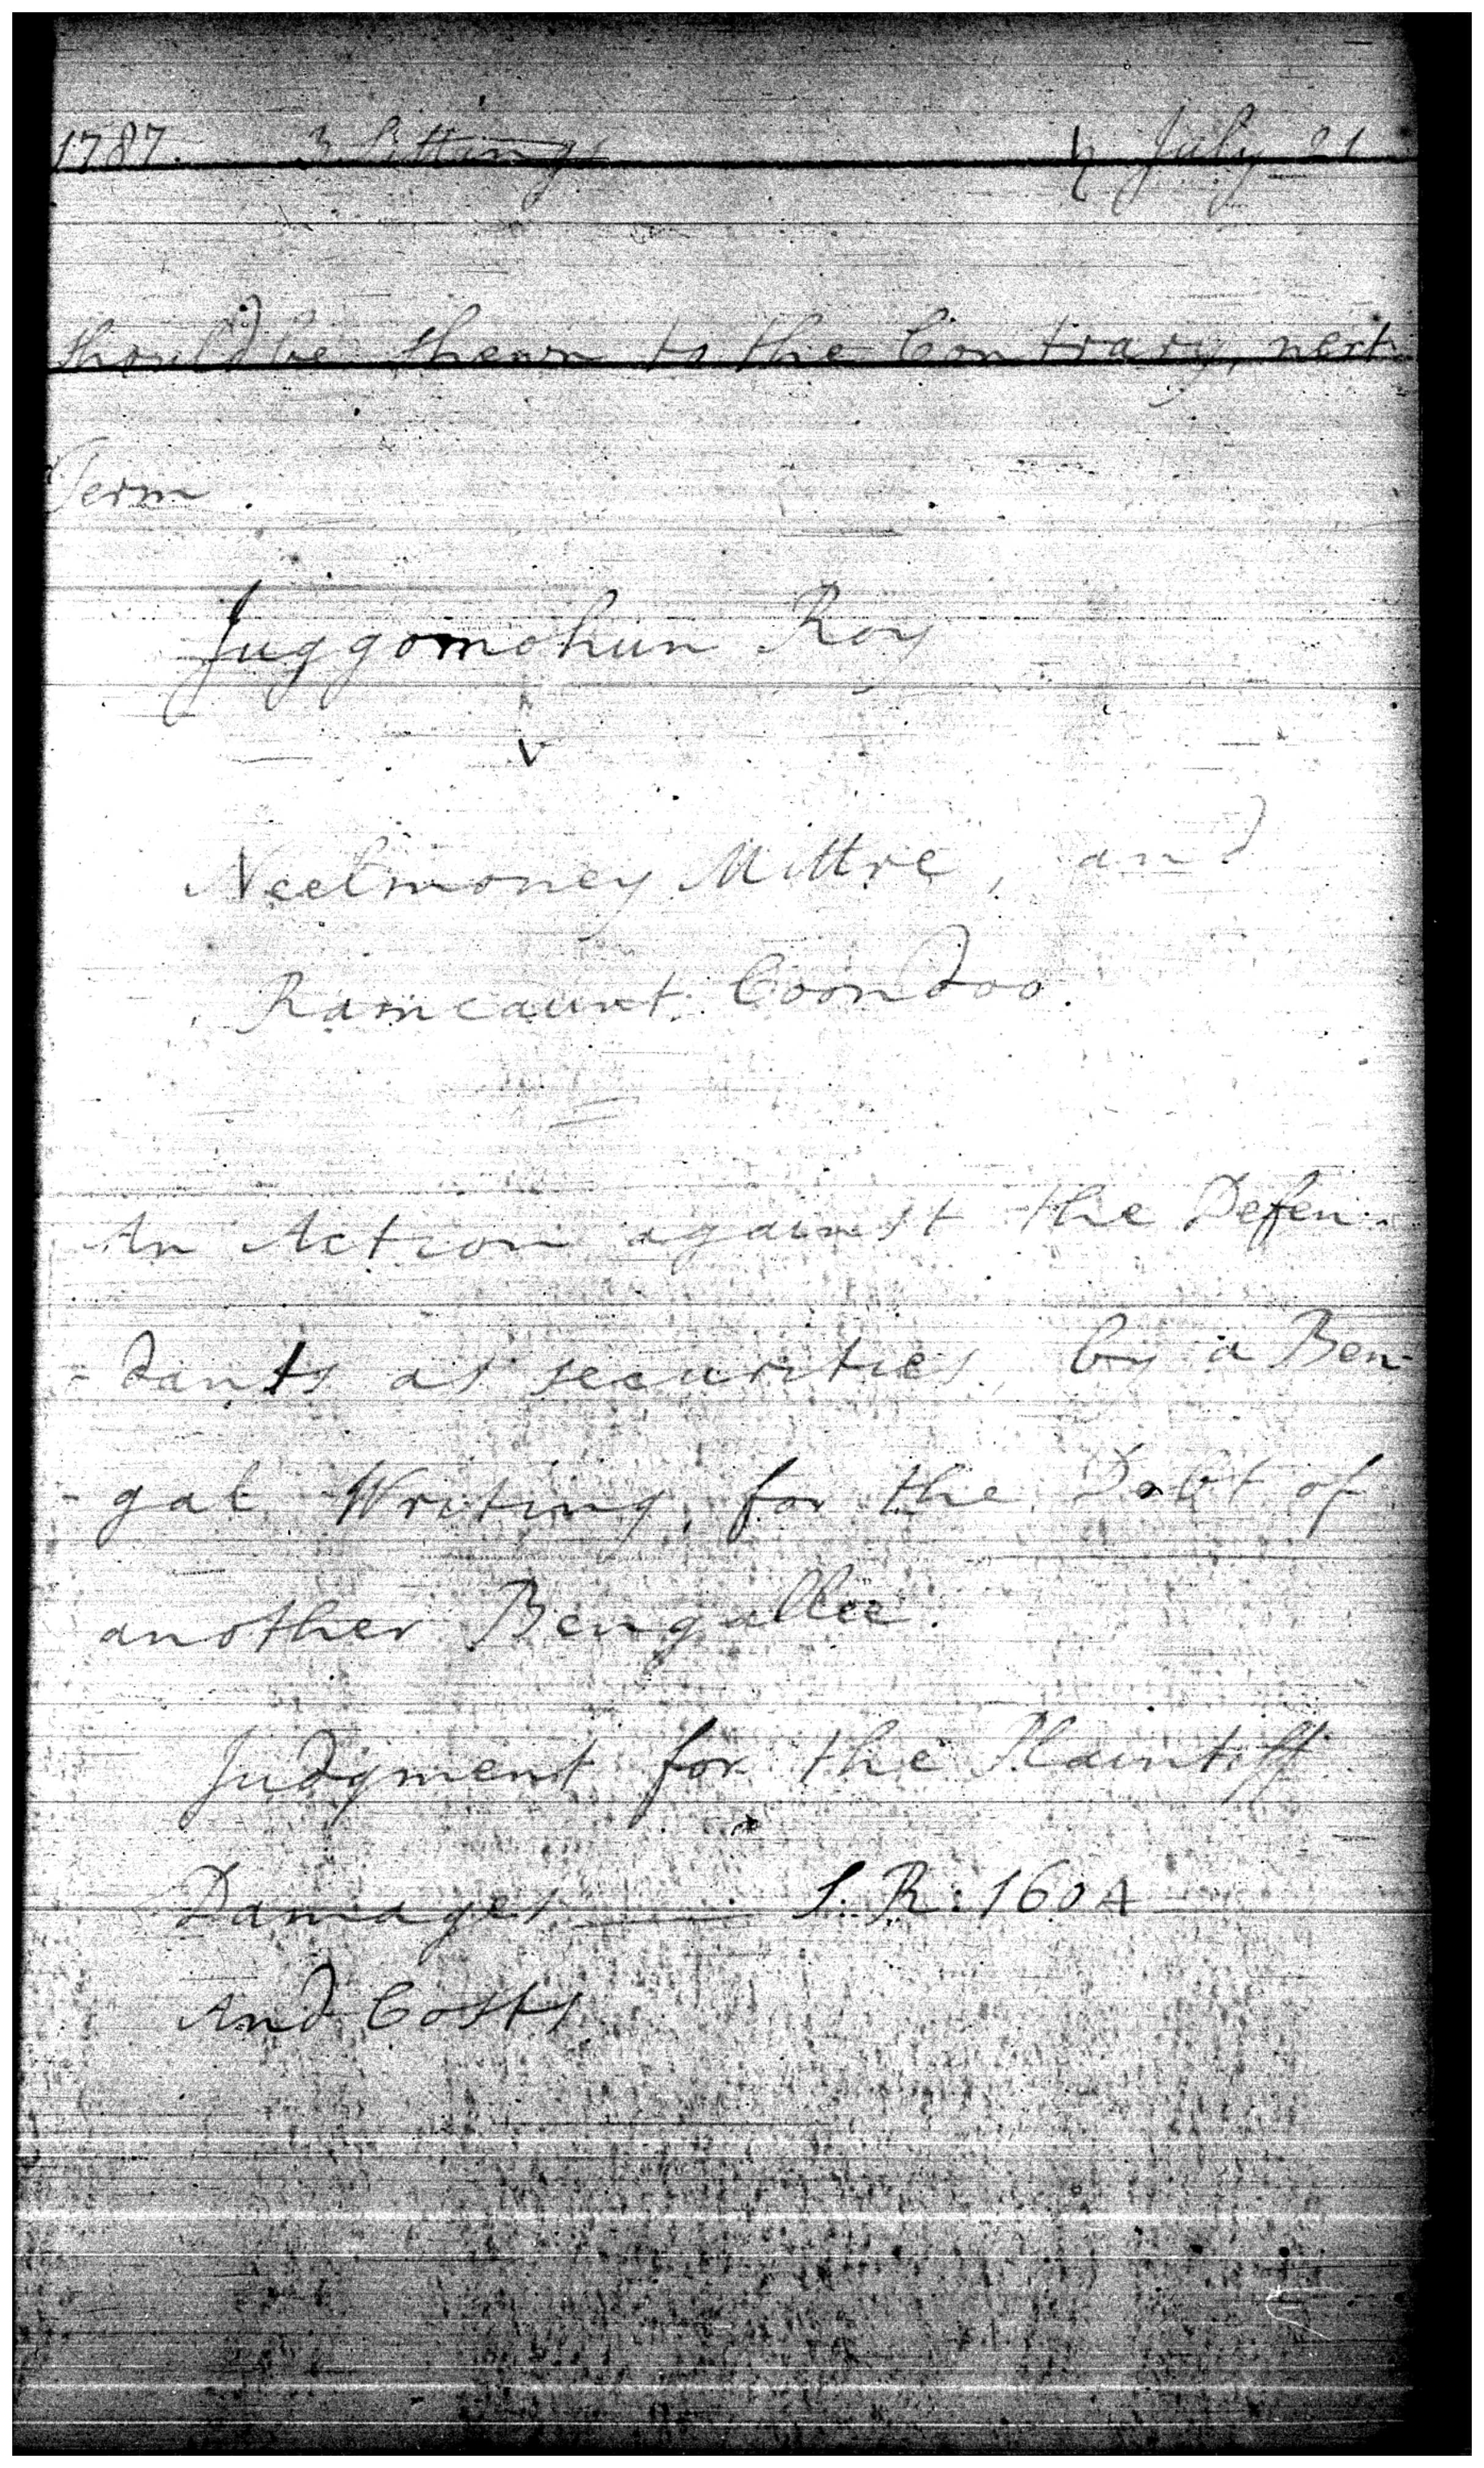 1787. 3 Sittings ♄ July 21
should be shewn to the Contrary, next
Term.
Juggomohun Roy
v
Neelmoney Mittre, and
Ramcaunt Coondoo.
An Action against the Defen-
-dants as securities, by a Ben-
-gal Writing, for the Debt of
another Bengallee.
Judgment for the Plaintiff
Damages — S. R. 160A
And Costs